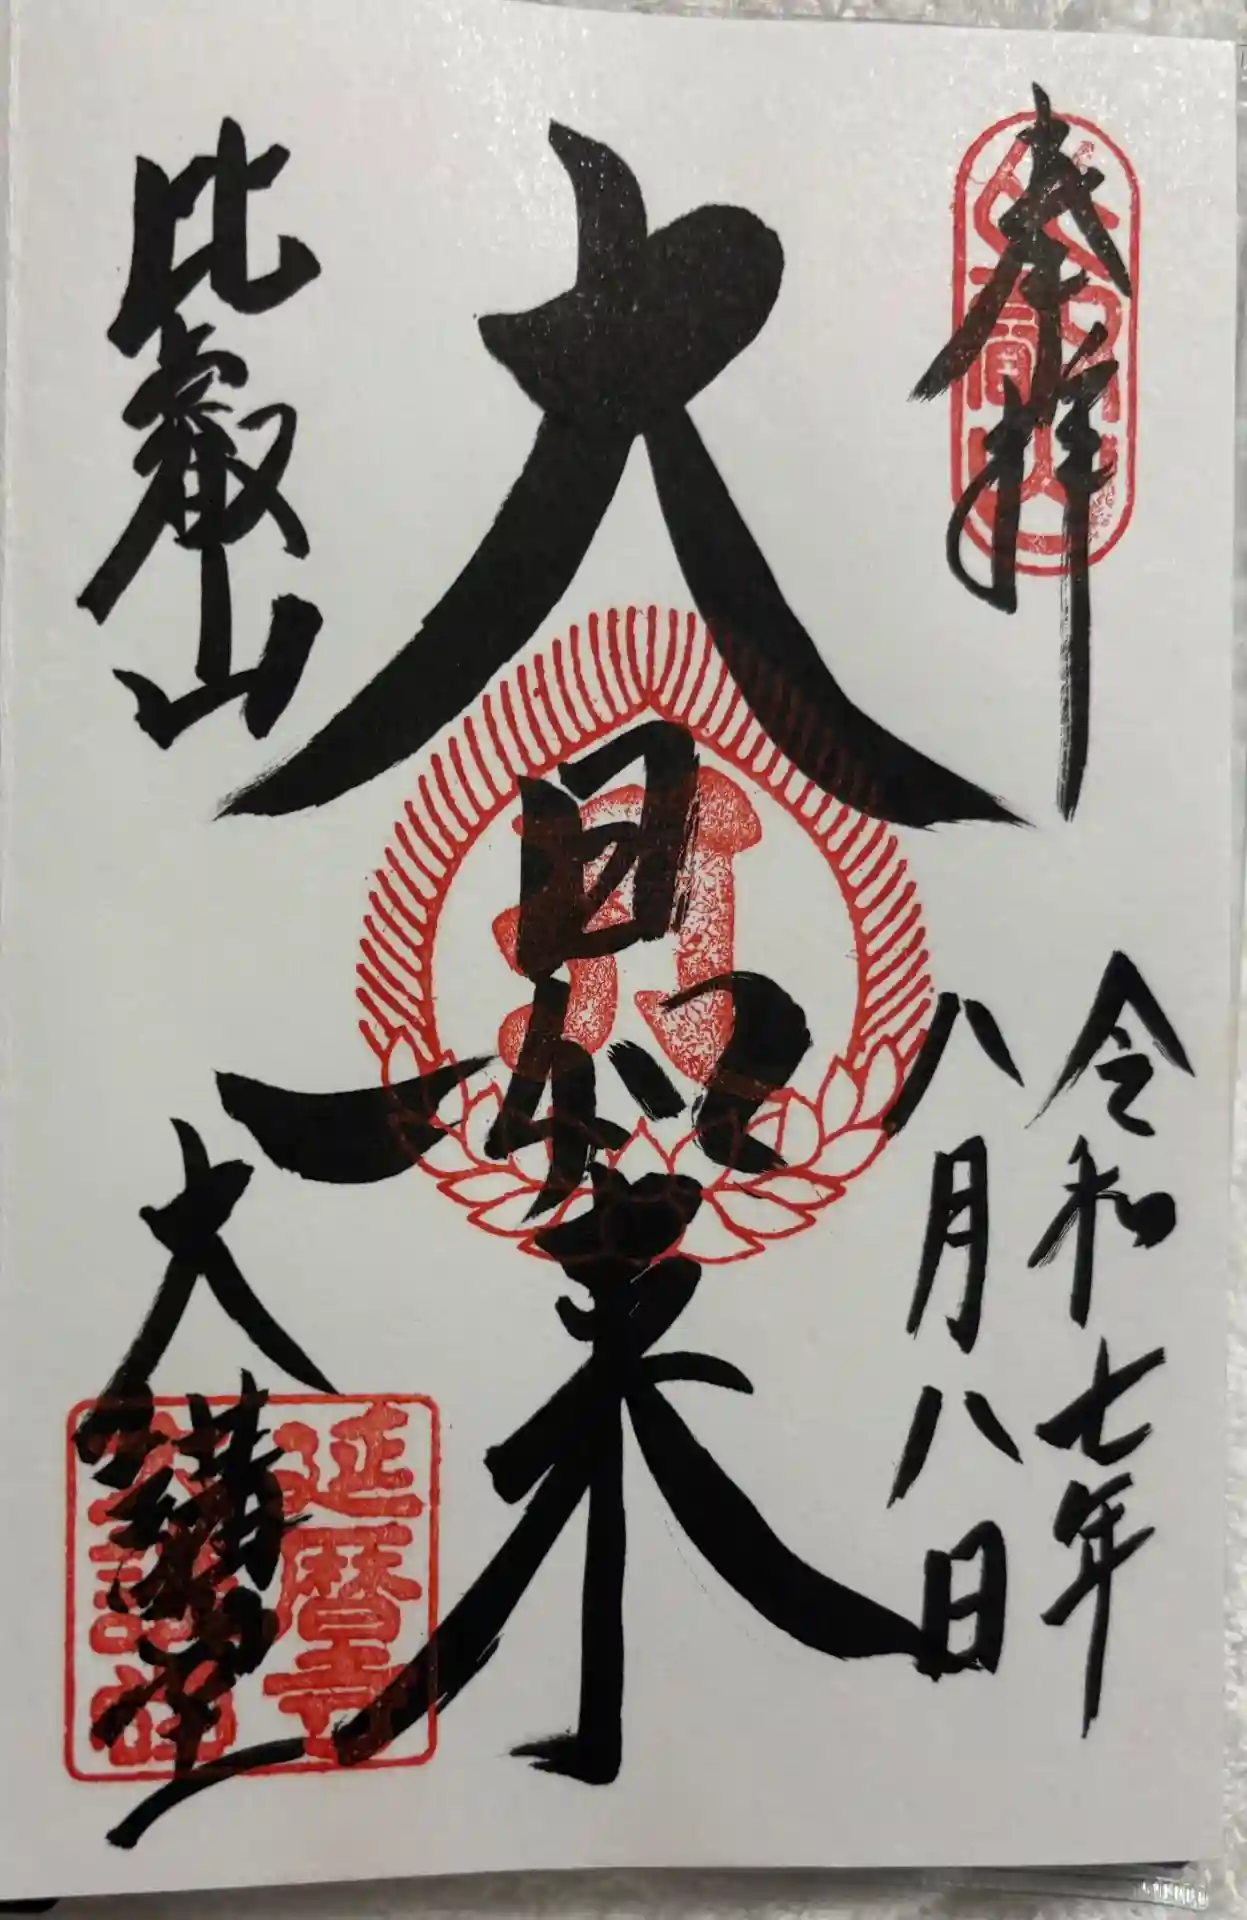 奉拝
令和七年
八月八日
大日如来
比叡山
大講堂
延暦寺
大講堂